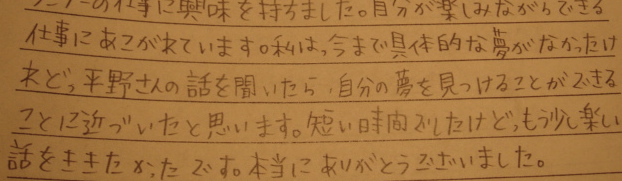 の仕事に興味を持ちました。自分が楽しみながらできる
仕事にあこがれています。私は、今まで具体的な夢がなかったけ
れど、平野さんの話を聞いたら、自分の夢を見つけることができる
ことに近づいたと思います。短い時間でしたけど、もう少し楽しい
話をききたかったです。本当にありがとうございました。